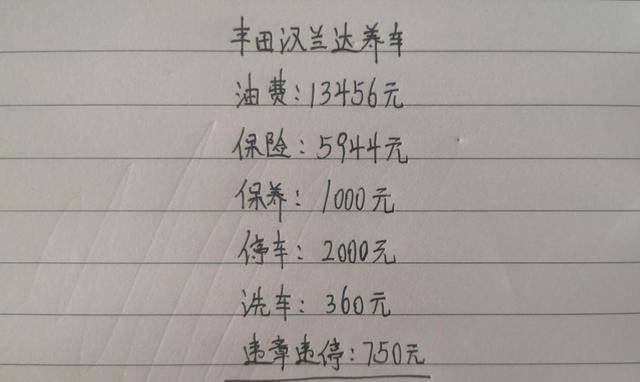 丰田汉兰达养车
油费:13456元
保险:5944元
保养:1000元
停车:2000元
洗车:360元
违章违停:750元